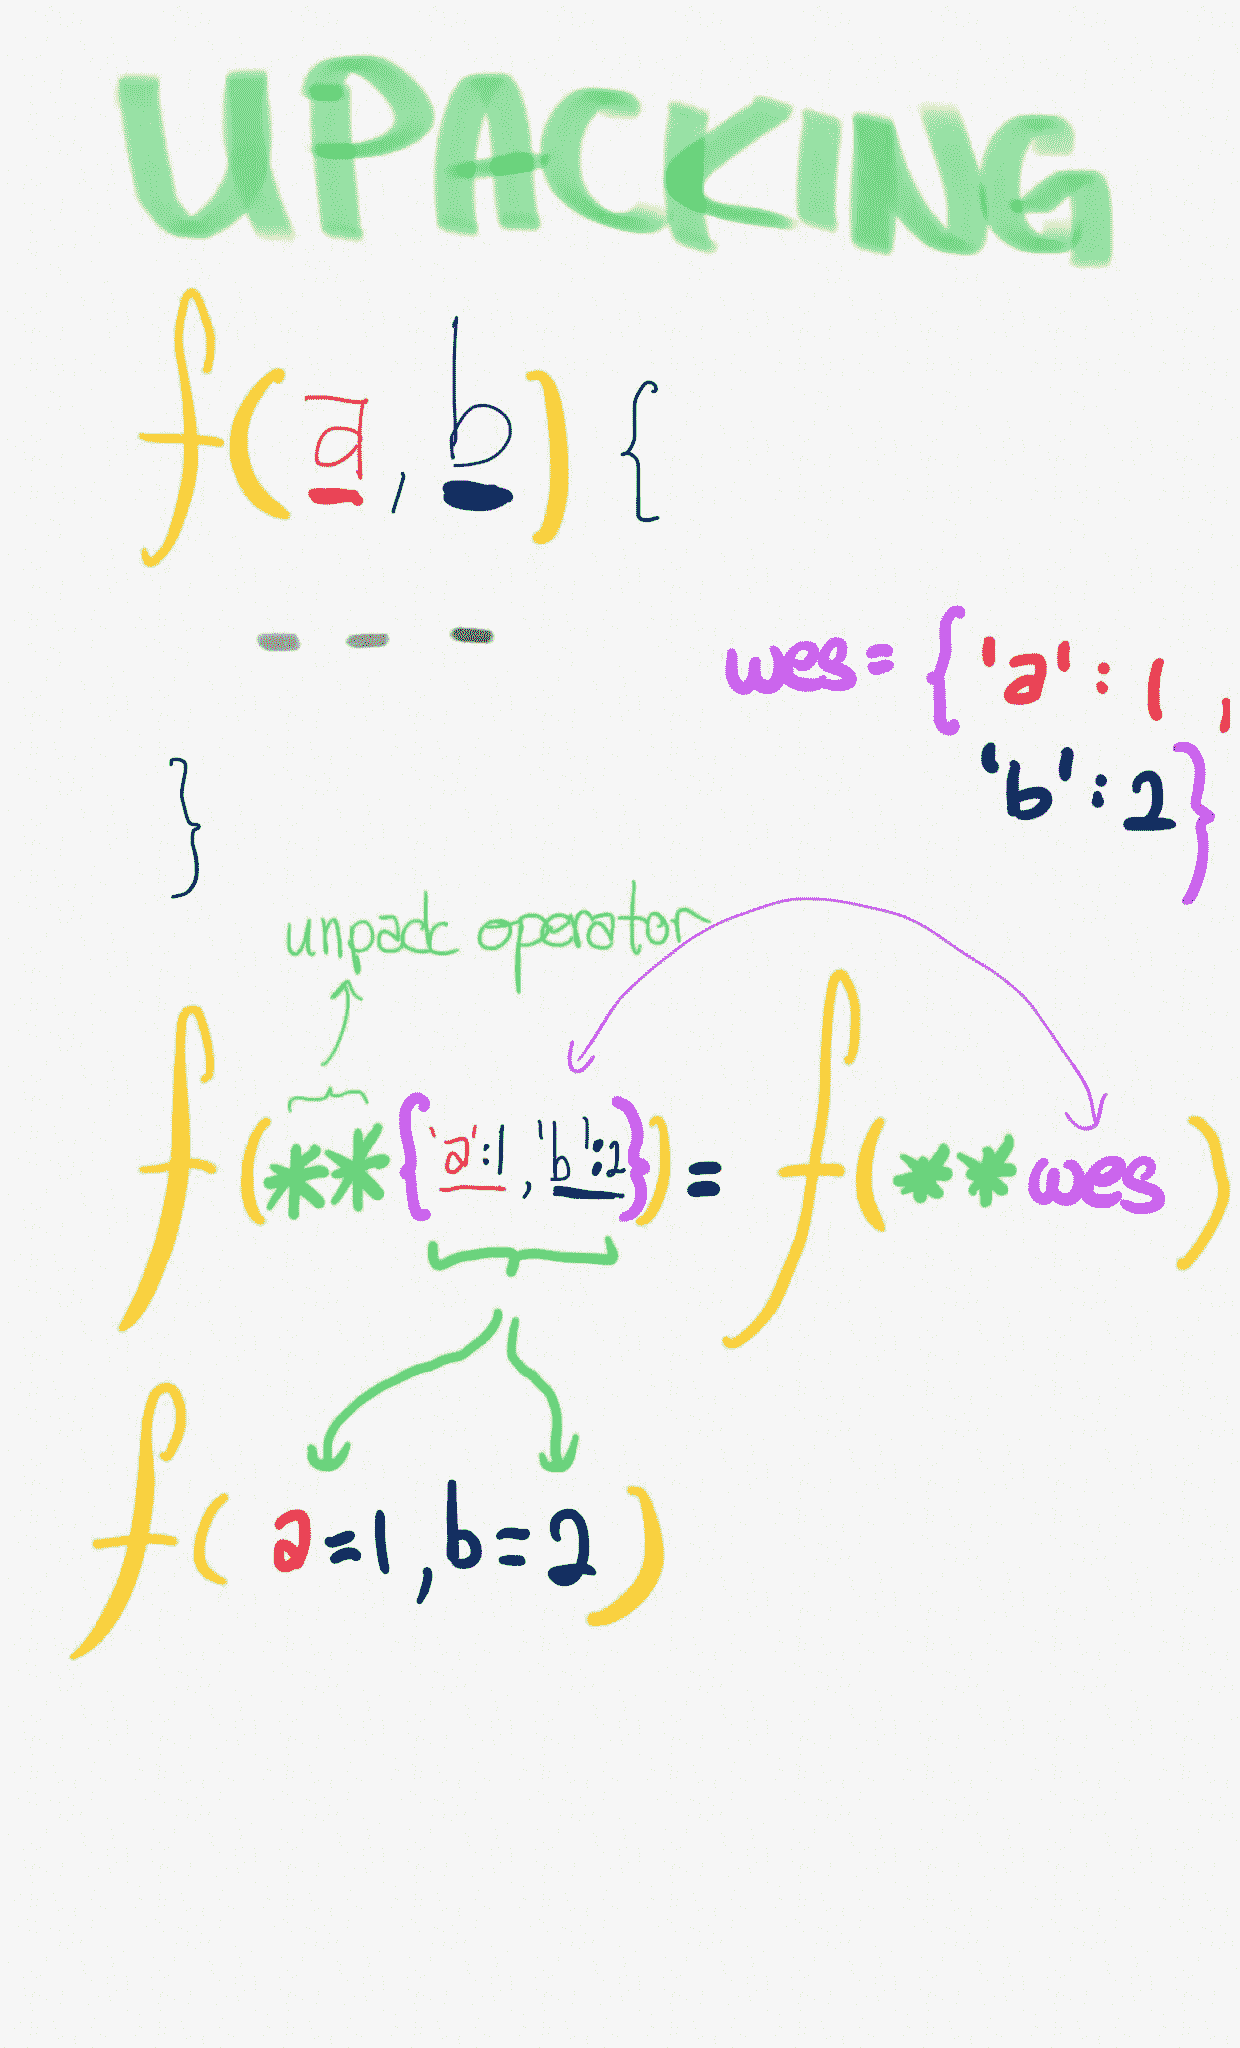 UPACKING
f(a, b) {
- - -
wes = { 'a' : 1 ,
'b' : 2 }
}
unpack operator
f(**{'a':1, 'b':2}) = f(**wes)
f(a=1, b=2)